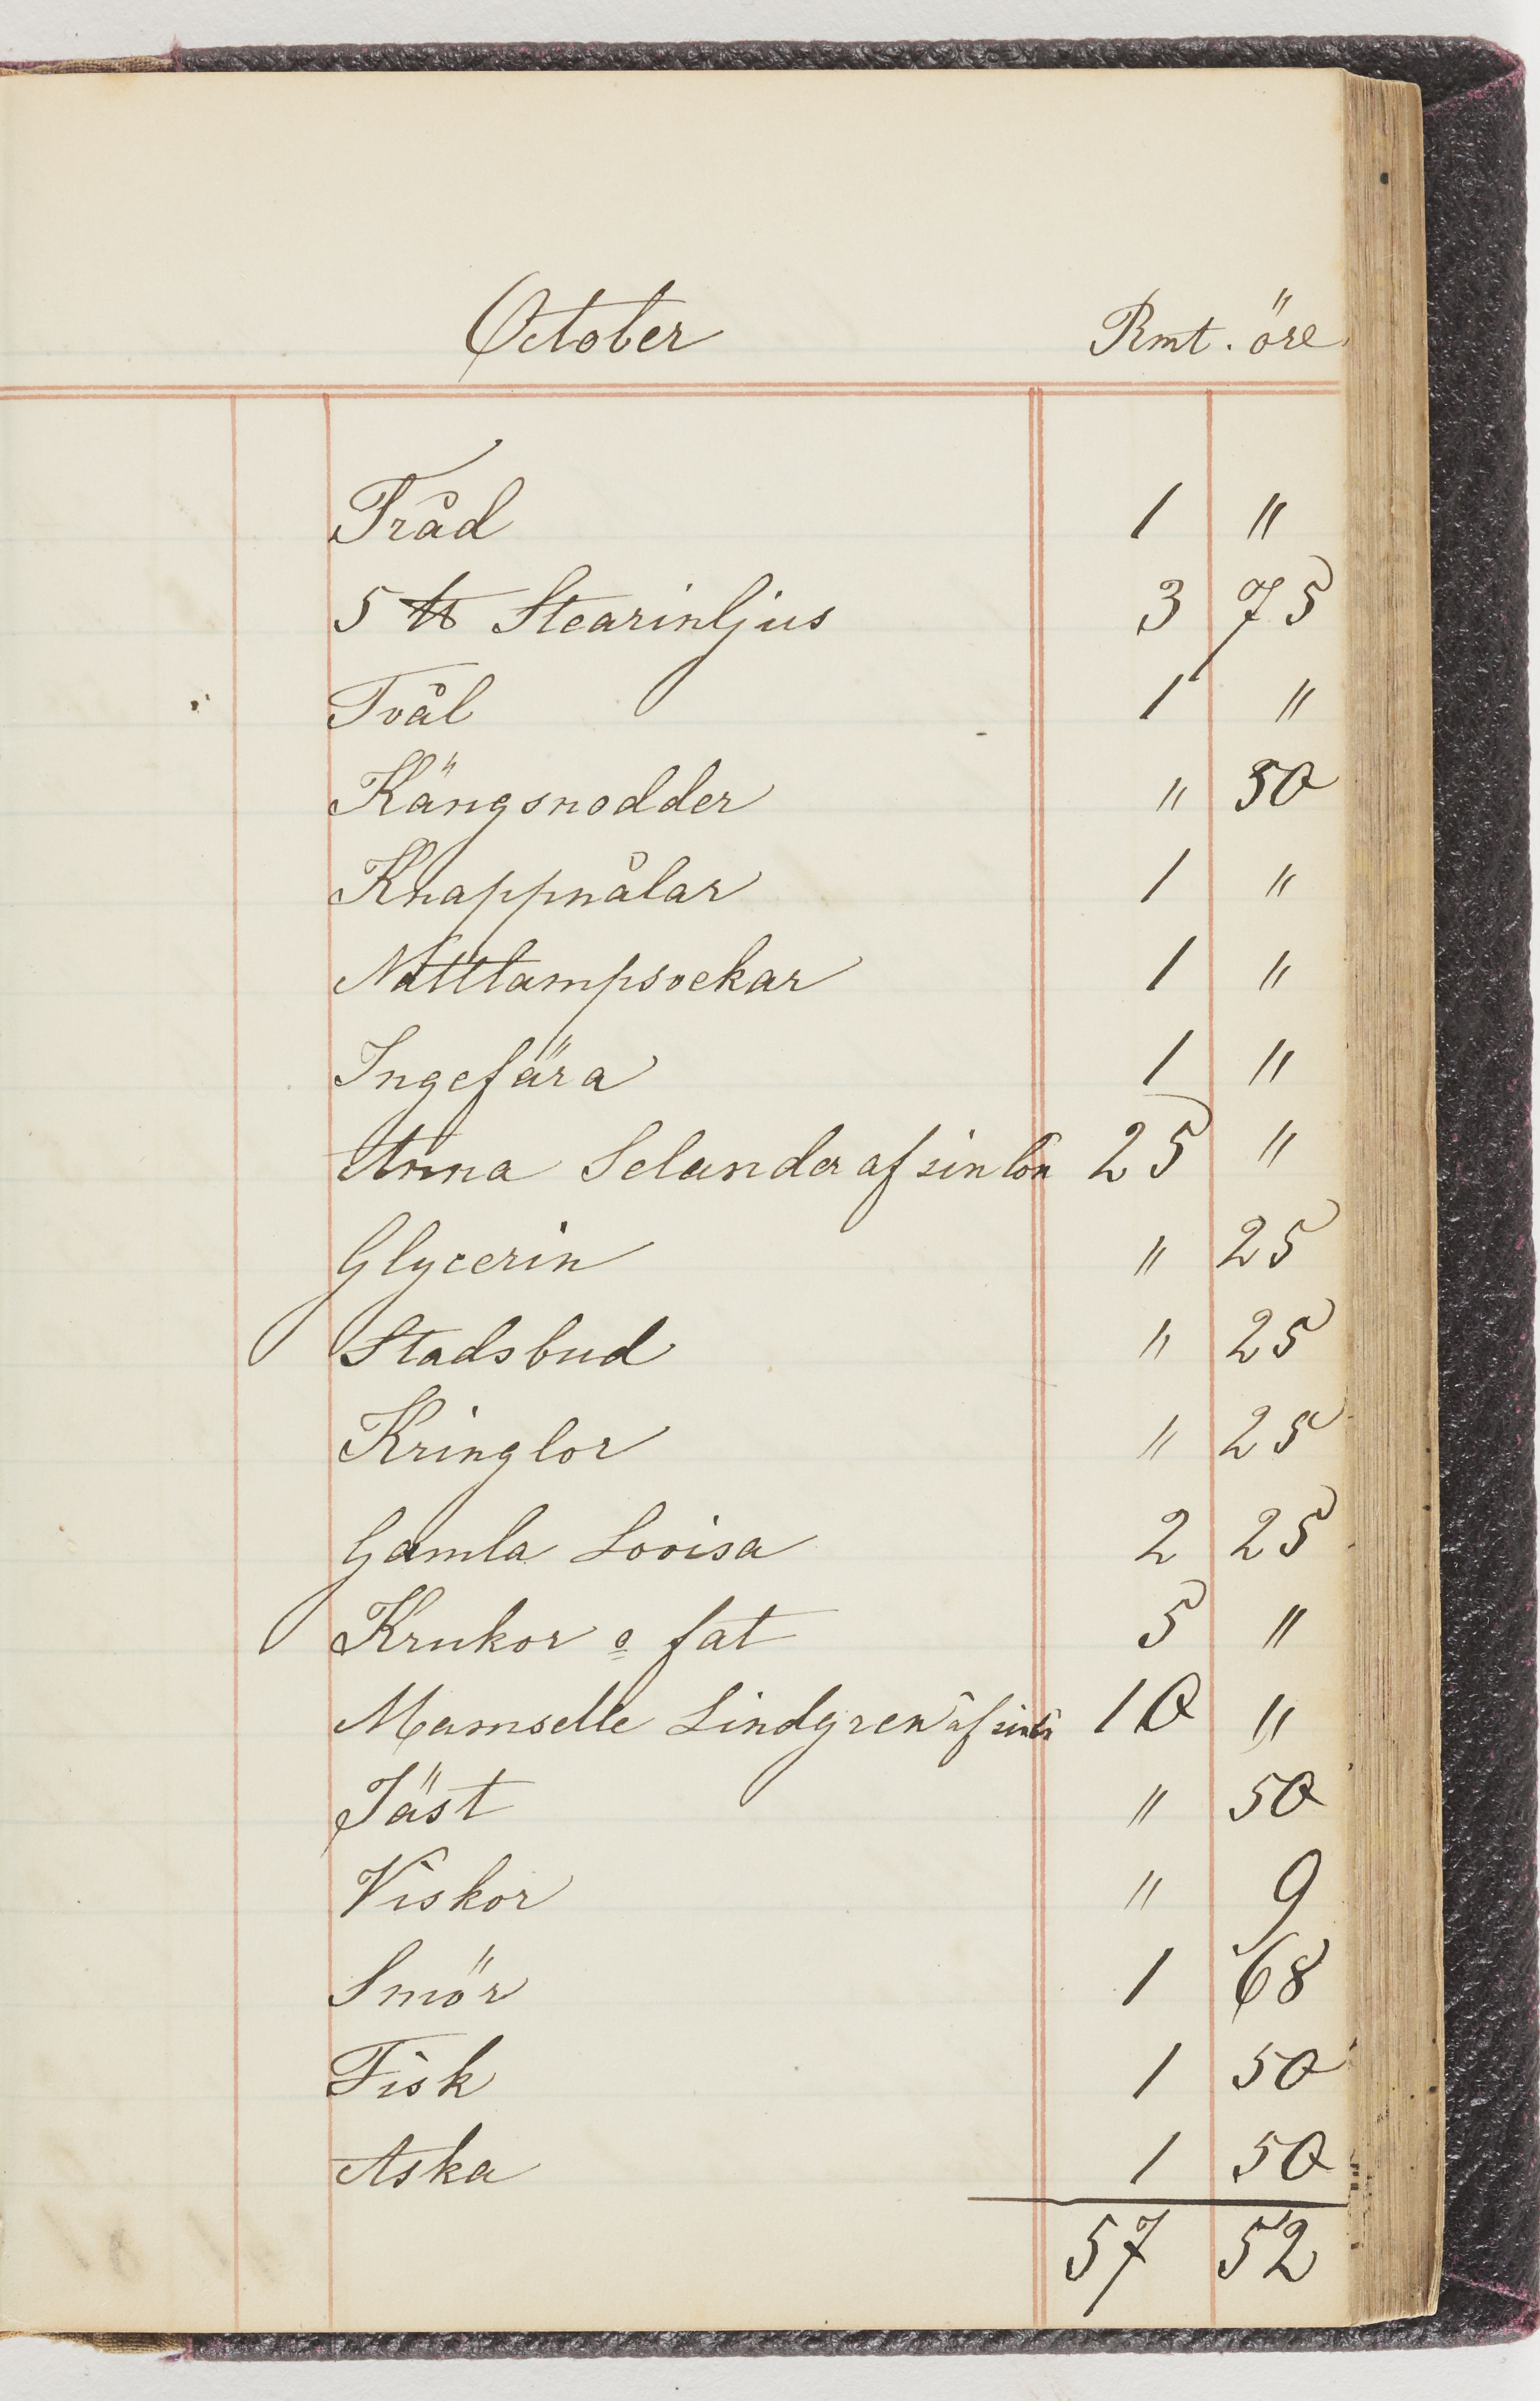 October Rmt. öre
Tråd 1 "
5 ℔ Stearinljus 3 75
Tvål 1 "
Kängsnodder " 50
Knappnålar 1 "
Nattlampsvekar 1 "
Ingefära 1 "
Anna Selander af sin lön 25 "
Glycerin " 25
Stadsbud " 25
Kringlor " 25
Gamla Lovisa 2 25
Krukor o fat 5 "
Mamselle Lindgren af sin 10 "
Jäst " 50
Viskor " 9
Smör 1 68
Fisk 1 50
Aska 1 50
57 52